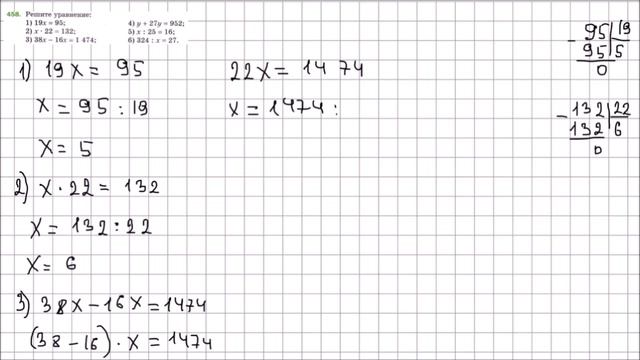 458. Решите уравнение:
1) 19x = 95;
2) x · 22 = 132;
3) 38x − 16x = 1 474;
4) y + 27y = 952;
5) x : 25 = 16;
6) 324 : x = 27.
1) 19x = 95
x = 95 : 19
x = 5
2) x · 22 = 132
x = 132 : 22
x = 6
3) 38x − 16x = 1474
(38 − 16) · x = 1474
22x = 1474
x = 1474 :
− 95 | 19
95 | 5
0
− 132 | 22
132 | 6
0